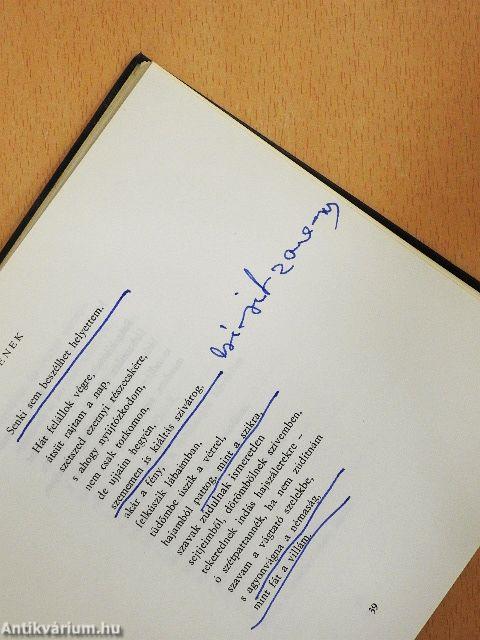 ENEK
Senki sem beszélhet helyettem.
Hát felüllok végre,
átsüt rajtam a nap,
szétszed ezernyi részecskére,
s ahogy nyújtózkodom,
nem csak torkomon,
de ujjaim hegyén,
szememen is kiáltás szivárog,
akár a fény,
felkúszik lábaimban,
tüdőmbe úszik a vérrel,
hajamból pattog, mint a szikra,
szavak zúdulnak ismeretlen
sejtjeimből, dörömbölnek szívemben,
tekerednek indás hajszálerekre –
ó szétpattannék, ha nem zúdítanám
szavam a vágtató szelekbe,
s agyonvágna a némaság,
mint fát a villám.
39
Antikvárium.hu